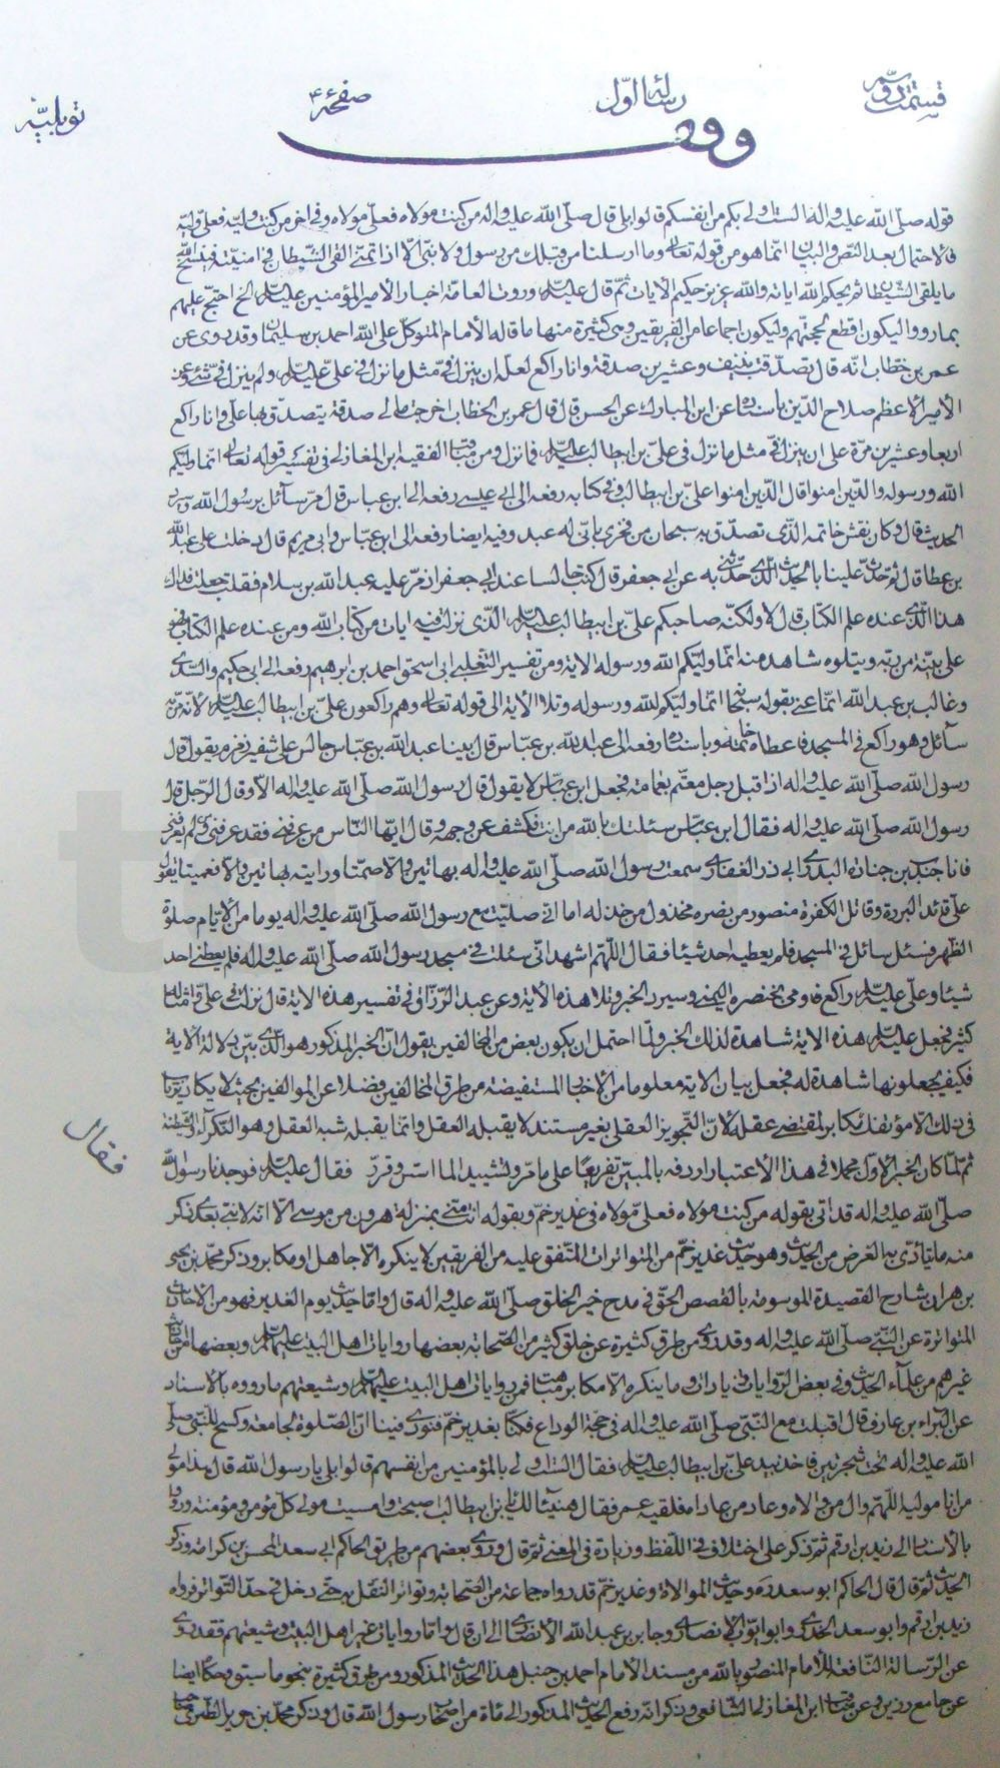 قسمت دوّم
رسالۀ اوّل
صفحۀ ۴
توبليّه
وقف
قوله صلّى اللّه عليه واله الست اولى بكم من انفسكم قالوا بلى قال صلّى اللّه عليه واله من كنت مولاه فعلىّ مولاه وفى اخر من كنت وليّه فعلىّ وليّه
فالاحتمال بعد النصّ والبيان انّما هو من قوله تعالى وما ارسلنا من قبلك من رسول ولا نبىّ الّا اذا تمنّى القى الشّيطان فى امنيّته فينسخ اللّه
ما يلقى الشيطان ثمّ يحكم اللّه اياته واللّه عزيز حكيم الايات ثمّ قال عليه السّلم وروت العامّة اخبار الامير المؤمنين عليه السّلم الخ احتجّ عليهم
بما رووا ليكون اقطع لحجتهم وليكون اجماعا من الفريقين وهى كثيرة منها ما قاله الامام المتوكّل على اللّه احمد بن سليمان وقد روى عن
عمر بن خطّاب انّه قال تصدّقت بنيف وعشرين صدقة وانا راكع لعلّه ان ينزل فىّ مثل ما نزل فى علىّ عليه السّلم ولم ينزل فىّ شئ وعن
الامير الاعظم صلاح الدّين باسناده عن ابن المبارك عن الحسن قال قال عمر بن الخطاب اخرجت مالى صدقة يتصدّق بها عنّى وانا راكع
اربعا وعشرين مرّة على ان ينزل فىّ مثل ما نزل فى علىّ بن ابيطالب عليه السّلم فما نزل ومن مناقب الفقيه ابن المغازلى فى تفسير قوله تعالى انّما وليّكم
اللّه ورسوله والّذين امنوا قال الّذين امنوا علىّ بن ابيطالب وفى كتابه رفعه الى ابى عيسى رفعه الى ابن عباس قال مرّ سآئل برسول اللّه وسرد
الحديث قال وكان نقش خاتمه الّذى تصدّق به سبحان من فخرى بانّى له عبد وفيه ايضا رفعه الى ابن عبّاس وابى مريم قال دخلت على عبد اللّه
بن عطا قال ثمّ حدّث علينا بالحديث الّذى حدّثنى به عن ابى جعفر قال كنت جالسا عند ابى جعفر اذ مرّ عليه عبد اللّه بن سلام فقلت جعلت فداك
هذا الّذى عنده علم الكتاب قال لا ولكنّه صاحبكم علىّ بن ابيطالب عليه السّلم الّذى نزل فيه ايات من كتاب اللّه ومن عنده علم الكتاب
على بيّنة من ربّه ويتلوه شاهد منه انّما وليّكم اللّه ورسوله الاية ومن تفسير الثعلبى ابى اسحق احمد بن ابرهيم رفعه الى ابى حكيم والسّدى
وغالب بن عبد اللّه انّما عنى بقوله سبحانه انّما وليّكم اللّه ورسوله وتلا الاية الى قوله تعالى وهم راكعون علىّ بن ابيطالب عليه السّلم لانّه مرّ به
سآئل وهو راكع فى المسجد فاعطاه خاتمه وباسناده رفعه الى عبد اللّه بن عبّاس قال بينا عبد اللّه بن عبّاس جالس على شفير زمزم يقول قال
رسول اللّه صلّى اللّه عليه واله اذ اقبل رجل معتمّ بعمامة فجعل ابن عبّاس لا يقول قال رسول اللّه صلّى اللّه عليه واله الّا وقال الرّجل قال
رسول اللّه صلّى اللّه عليه واله فقال ابن عبّاس سئلتك باللّه من انت فكشف عن وجهه وقال ايّها النّاس من عرفنى فقد عرفنى ومن لم يعرفنى
فانا جندب بن جنادة البدرى ابى ذر الغفارى سمعت رسول اللّه صلّى اللّه عليه واله بهاتين والّا صمّتا ورايته بهاتين والّا فعميتا يقول
علىّ قائد البررة وقاتل الكفرة منصور من نصره مخذول من خذله اما انّى صلّيت مع رسول اللّه صلّى اللّه عليه واله يوما من الايّام صلوة
الظهر فسئل سائل فى المسجد فلم يعطيه احد شيئا فقال اللّهمّ اشهد انّى سئلت فى مسجد رسول اللّه صلّى اللّه عليه واله فلم يعطنى احد
شيئا وعلىّ عليه السّلم راكع فاومى بخنصره اليمنى وسرد الخبر وتلا هذه الاية وعن عبد الرّزاق فى تفسير هذه الاية قال نزلت فى علىّ وامثالها
كثير فجعل عليه السّلم هذه الاية شاهدة لذلك الخبر ولمّا احتمل ان يكون بعض من المخالفين يقول انّ الخبر المذكور هو الّذى بيّن دلالة الاية
فكيف يجعلونها شاهدة له فجعل بيان الاية معلوما من الاخبار المستفيضة من طرق المخالفين فضلا عن الموالفين بحيث لا يكاد يرتاب
فى ذلك الّا مؤتفك مكابر لمقتضى عقله لانّ التّجويز العقلى بغير مستند لا يقبله العقل وانّما يقبله شبه العقل وهو النّكرآء والشيطنة
ثمّ لمّا كان الخبر الاوّل مجملا فى هذا الاعتبار اردفه بالمبيّن تفريعا على ما مرّ وتشييدا لما اسّس وقرّر فقال عليه السّلم فوجدنا رسول اللّه
صلّى اللّه عليه واله قد اتى بقوله من كنت مولاه فعلىّ مولاه فى غدير خمّ وبقوله انت منّى بمنزلة هرون من موسى الّا انّه لا نبىّ بعدى فذكر
منه ما يتأدّى به الغرض من الحديث وهو حديث غدير خمّ من المتواترات المتّفق عليه من الفريقين لا ينكره الّا جاهل او مكابر وذكر محمّد بن يحيى
بن مهران شارح القصيدة الموسومة بالقصص الحقّ فى مدح خير الخلق صلّى اللّه عليه واله قال وامّا حديث يوم الغدير فهو من الاحاديث
المتواترة عن النّبىّ صلّى اللّه عليه واله وقد روى من طرق كثيرة عن خلق كثير من الصّحابة بعضها روايات اهل البيت عليهم السّلم وبعضها من
غيرهم من علمآء الحديث وفى بعض الرّوايات زيادات وما ينكره الّا مكابر مباهت فمن روايات اهل البيت عليهم السّلم وشيعتهم ما رووه بالاسناد
عن البرآء بن عازب قال اقبلت مع النّبىّ صلّى اللّه عليه واله فى حجّة الوداع فكنّا بغدير خمّ فنودى فينا انّ الصّلوة جامعة وكسح للنّبىّ صلّى
اللّه عليه واله تحت شجرتين فاخذ بيد علىّ بن ابيطالب عليه السّلم فقال الست اولى بالمؤمنين من انفسهم قالوا بلى يا رسول اللّه قال هذا مولى
من انا موليه اللّهمّ وال من والاه وعاد من عاداه فلقيه عمر فقال هنيئا لك يابن ابيطالب اصبحت وامسيت مولى كلّ مؤمن ومؤمنة وروا
بالاسناد الى زيد بن ارقم ثمّ ذكر على اختلاف فى اللّفظ وزيادة فى المعنى ثمّ قال وروى بعضهم من طريق الحاكم ابى سعد المحسن بن كرامة وذكر
الحديث ثمّ قال قال الحاكم ابو سعد ره وحديث الموالاة وغدير خمّ قد رواه جماعة من الصّحابة وتواتر النّقل به حتّى دخل فى حدّ التّواتر فرواه
زيد بن ارقم وابو سعد الخدرى وابو ايّوب الانصارى وجابر بن عبد اللّه الأنصارى الى ان قال وامّا روايات غير اهل البيت وشيعتهم فقد روى
عن الرّسالة النّافعة للأمام المنصور باللّه من مسند الامام احمد بن حنبل هذا الحديث المذكور ومن طرق كثيرة بنحو ما سبق وحكى ايضا
عن جامع رزين وعن مناقب ابن المغازلى الشّافعى وذكر انّه رفع الحديث المذكور الى مائة من اصحاب رسول اللّه قال وذكر محمّد بن جرير الطّبرى
فقال